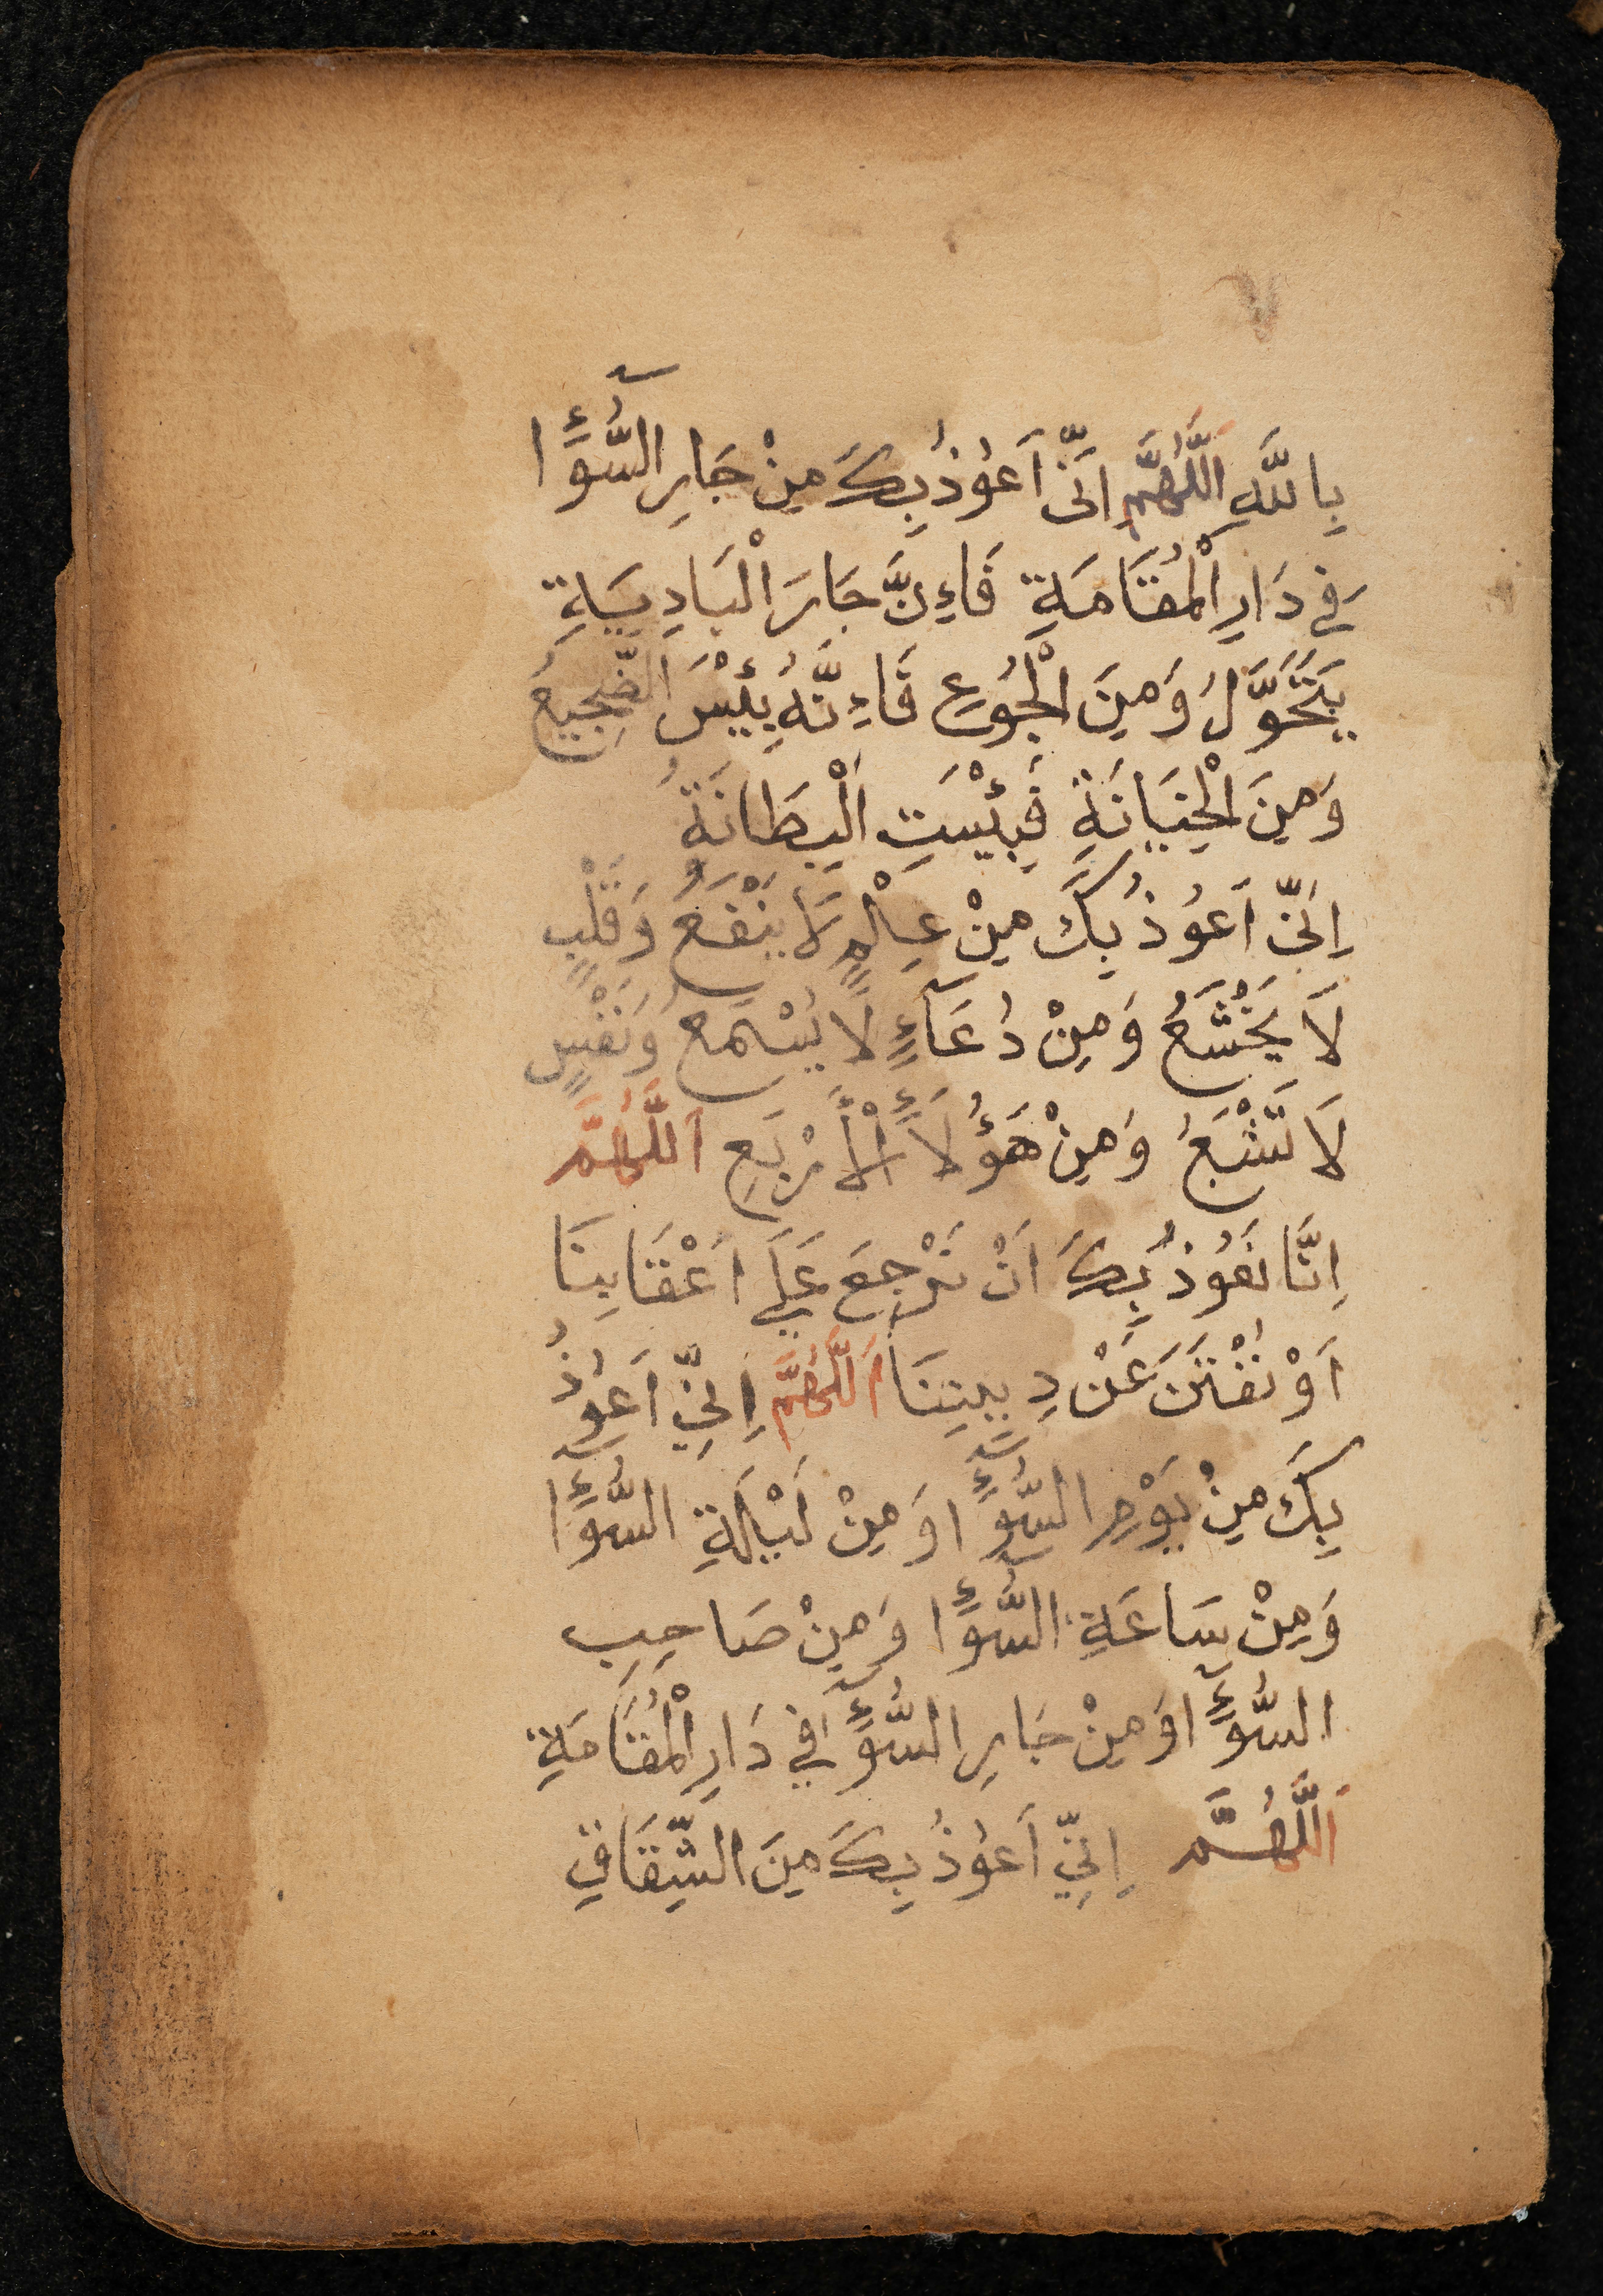 بِاللَّهِ اَللَّهُمَّ اِنِّى اَعُوْذُ بِكَ مِنْ جَارِ السُّوٓءًا
فِي دَارِ الْمُقَامَةِ فَاءِنَّ جَارَ الْبَادِيَةِ
يَتَحَوَّلُ وَمِنَ الْجُوعِ فَاءِنَّهُ بِئْسَ الضَّجِيعُ
وَمِنَ الْخِيَانَةِ فَبِئْسَتِ الْبِطَانَةُ
اِنِّى اَعُوذُ بِكَ مِنْ عِلْمٍ لَا يَنْفَعُ وَقَلْبٍ
لَا يَخْشَعُ وَمِنْ دُعَآءٍ لَا يُسْمَعُ وَنَفْسٍ
لَا تَشْبَعُ وَمِنْ هَؤُلَاءِ الْأَرْبَعِ اَللَّهُمَّ
اِنَّا نَعُوذُ بِكَ اَنْ نَرْجِعَ عَلَى اَعْقَابِنَا
اَوْ نُفْتَنَ عَنْ دِيْنِنَا اَللَّهُمَّ اِنِّي اَعُوْذُ
بِكَ مِنْ يَوْمِ السُّوٓءًا وَمِنْ لَيْلَةِ السُّوٓءًا
وَمِنْ سَاعَةِ السُّوٓءًا وَمِنْ صَاحِبِ
السُّوٓءًا وَمِنْ جَارِ السُّوٓءًا فِي دَارِ الْمُقَامَةِ
اَللَّهُمَّ اِنِّي اَعُوْذُ بِكَ مِنَ الشِّقَاقِ